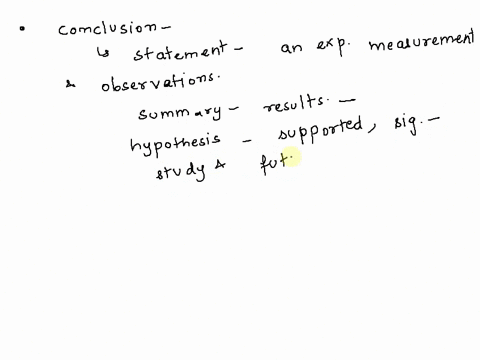 • conclusion –
↳ statement – an exp. measurement
& observations.
summary – results. –
hypothesis – supported, sig. –
study & fut.